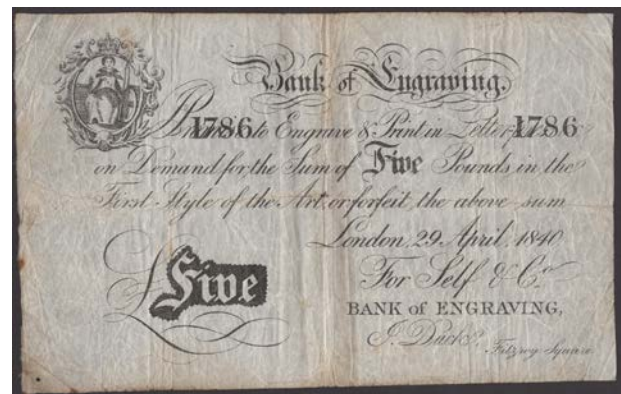 Bank of Engraving.
1786 to Engrave & Print in Letter 1786
on Demand for the Sum of Five Pounds in the
First Style of the Art, or forfeit the above sum
London, 29 April, 1840
For Self & Co.
£Five
BANK of ENGRAVING,
Fitzroy Square